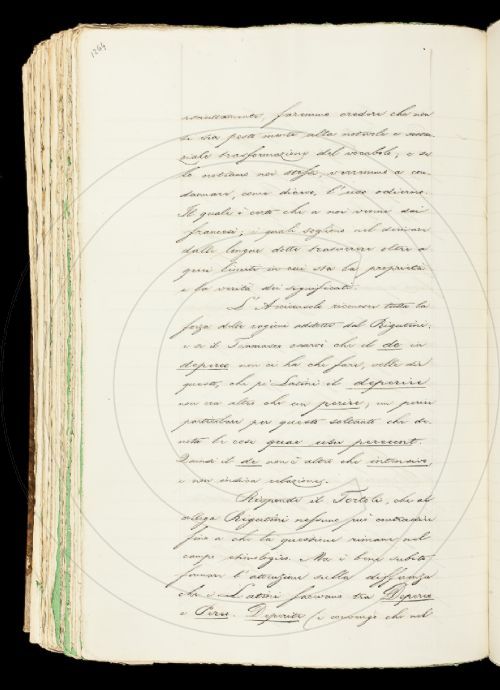 1264
 faremmo credere che non
si sia posto mente alla notevole e
 trasformazione del vocabolo, e se
lo notiamo noi stessi, verremmo a con-
dannare, come dicevo, l'uso odierno.
Il quale è certo che a noi venne dai
francesi, i quali sogliono nel derivare
dalle lingue dotte trascorrere oltre a
quei limiti in cui sta la proprietà
e la verità dei significati.
L'Arciconsolo riconosce tutta la
forza delle ragioni addotte dal Rigutini,
e se il Tommaseo osservò che il de in
deperire non ci ha che fare, volle dir
questo, che pei Latini il deperire
non era altro che un perire, un perire
particolare per questo soltanto che de-
nota le cose quae usu pereunt.
Quindi il de non è altro che intensivo,
e non indica relazione.
Risponde il Tortoli, che al
collega Rigutini nessuno può contradire
fino a che la questione rimane nel
campo etimologico. Ma è bene subito
fermare l'attenzione sulla differenza
che i Latini facevano tra Deperire
e Perire. Deperire (e convengo che nel